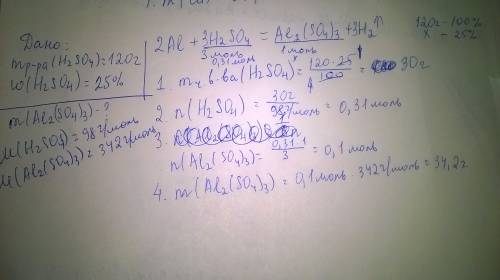 Дано:
mр-ра(H₂SO₄)=120г
ω(H₂SO₄)=25%
m(Al₂(SO₄)₃)-?
M(H₂SO₄)=98г/моль
M(Al₂(SO₄)₃)=342г/моль
2Al + 3H₂SO₄ = Al₂(SO₄)₃ + 3H₂↑
3 моль 1 моль
0,31 моль x
120г - 100%
x - 25%
1. mч.в-ва(H₂SO₄) = 120·25/100 = 30г
2. n(H₂SO₄) = 30г/98г/моль = 0,31 моль
3.
n(Al₂(SO₄)₃) = 0,31·1/3 = 0,1 моль
4. m(Al₂(SO₄)₃) = 0,1 моль · 342г/моль = 34,2г